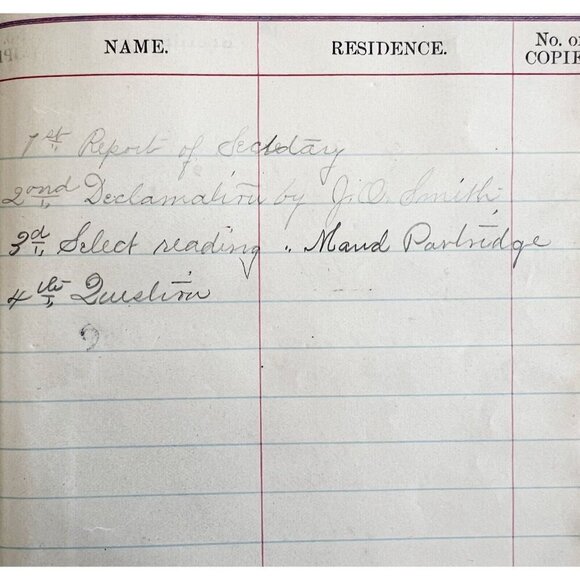 NAME. RESIDENCE. No. of
COPIE
1st Report of Secretary
2ond Declamation by J. O. Smith
3d Select reading " Maud Partridge
4th Question